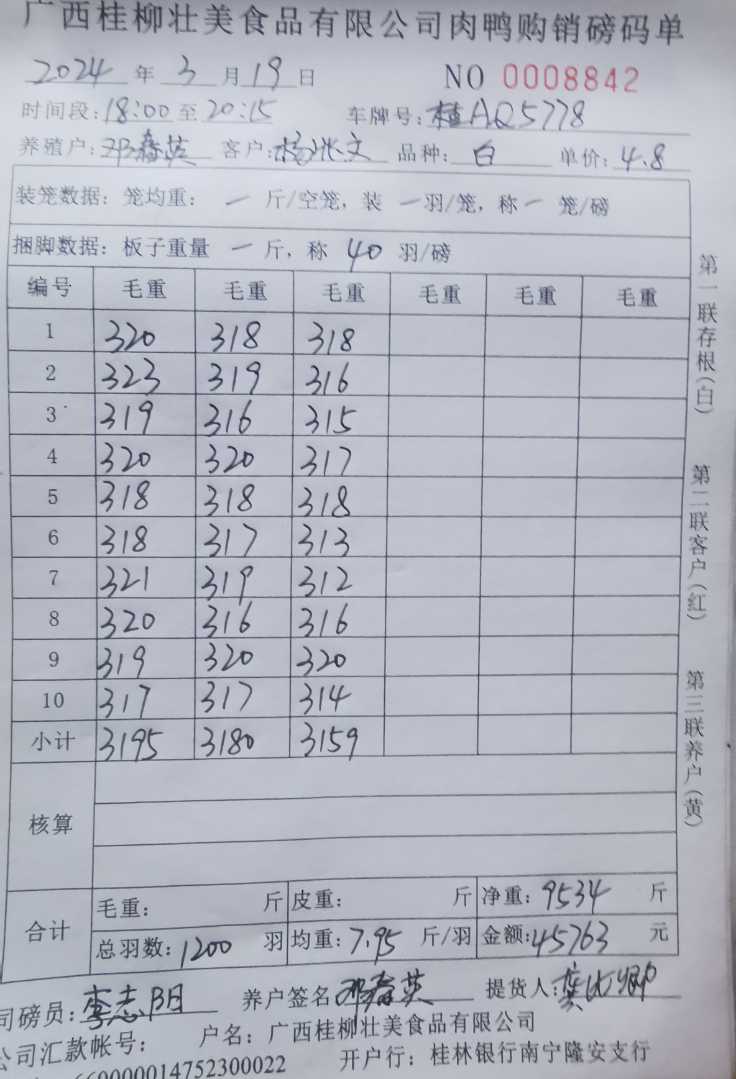 广西桂柳壮美食品有限公司肉鸭购销磅码单
2024 年 3 月 19 日 NO 0008842
时间段: 18:00 至 20:15 车牌号: 桂AQ5778
养殖户: 邓春英 客户: 杨 文 品种: 白 单价: 4.8
装笼数据: 笼均重: 一 斤/空笼, 装 一 羽/笼, 称 一 笼/磅
捆脚数据: 板子重量 一 斤, 称 40 羽/磅
编号 毛重 毛重 毛重 毛重 毛重 毛重
1 320 318 318
2 323 319 316
3 319 316 315
4 320 320 317
5 318 318 318
6 318 317 313
7 321 319 312
8 320 316 316
9 319 320 320
10 317 317 314
小计 3195 3180 3159
核算
合计
毛重: 斤 皮重: 斤 净重: 9534 斤
总羽数: 1200 羽 均重: 7.95 斤/羽 金额: 45763 元
司磅员: 李志阳 养户签名 邓春英 提货人:
公司汇款帐号: 户名: 广西桂柳壮美食品有限公司
660000014752300022 开户行: 桂林银行南宁隆安支行
第一联存根(白)
第二联客户(红)
第三联养户(黄)